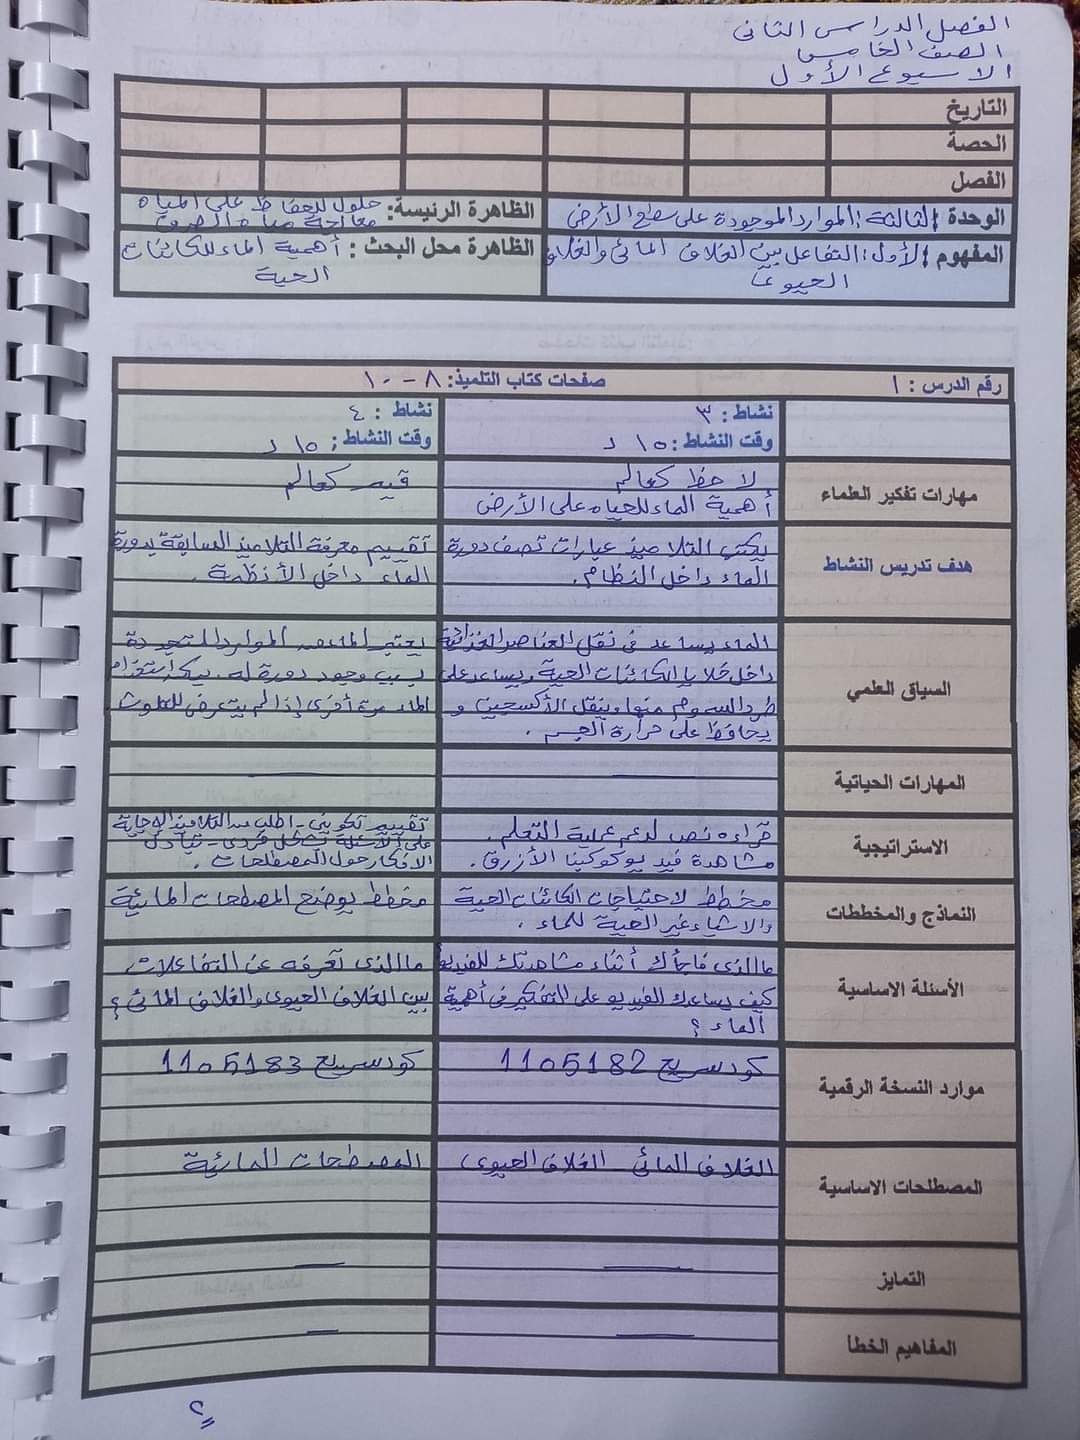 الفصل الدراسى الثانى
الصف الخامس
الاسبوع الأول
التاريخ
الحصة
الفصل
الوحدة الثالثة: الموارد الموجودة على سطح الأرض
الظاهرة الرئيسة: حلول للحفاظ على المياه
معالجة مياه الصرف
المفهوم الأول: التفاعل بين الغلاف المائى والغلاف
الحيوى
الظاهرة محل البحث : أهمية الماء للكائنات
الحية
رقم الدرس : ١ صفحات كتاب التلميذ: ٨ - ١٠
نشاط : ٣
وقت النشاط : ١٥ د
نشاط : ٤
وقت النشاط : ١٥ د
مهارات تفكير العلماء
لاحظ كعالم
أهمية الماء للحياه على الأرض
قيم كعالم
هدف تدريس النشاط
يكتب التلاميذ عبارات تصف دورة
الماء داخل النظام.
تقييم معرفة التلاميذ السابقة بدورة
الماء داخل الأنظمة.
السياق العلمي
الماء يساعد فى نقل العناصر الغذائية
داخل خلايا الكائنات الحية ويساعد على
طرد السموم منها وينقل الأكسجين و
يحافظ على حرارة الجسم.
يعتبر الماء من الموارد المتجددة
بسبب وجود دورة له. يمكن استخدام
الماء مرة أخرى إذا لم يتعرض للتلوث
المهارات الحياتية
الاستراتيجية
قراءه نص لدعم عملية التعلم.
مشاهدة فيديو كوكبنا الأزرق.
تقييم تكوينى - اطلب من التلاميذ الإجابة
على الأسئلة بشكل فردى - تبادل
الافكار حول المصطلحات.
النماذج والمخططات
مخطط لاحتياجات الكائنات الحية
والاشياء غير الحية للماء.
مخطط يوضح المصطلحات المائية
الأسئلة الاساسية
ما الذى فاجأك أثناء مشاهدتك للفيديو؟
كيف يساعدك الفيديو على التفكير فى أهمية
الماء؟
ما الذى تعرفه عن التفاعلات
بين الغلاف الحيوى والغلاف المائى؟
موارد النسخة الرقمية
كود سريع 1105182
كود سريع 1105183
المصطلحات الاساسية
الغلاف المائى - الغلاف الحيوى
المصطلحات المائية
التمايز
المفاهيم الخطأ